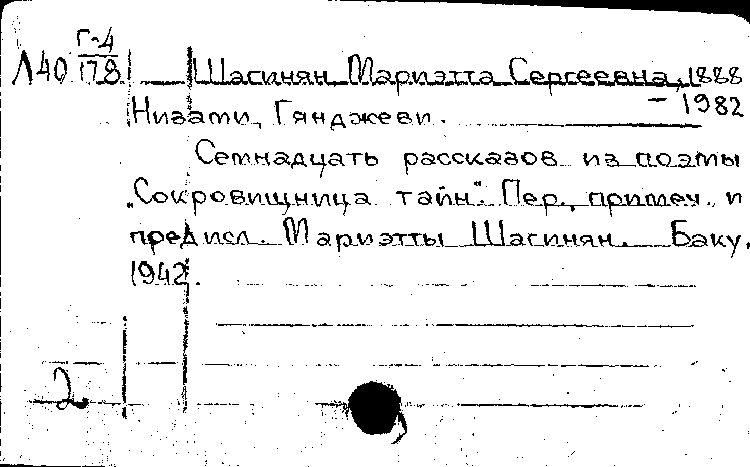 Л40 Г-4/178 Шагинян Мариэтта Сергеевна, 1888
– 1982
Низами, Гянджеви.
Семнадцать рассказов из поэмы
„Сокровищница тайн“. Пер., примеч. и
предисл. Мариэтты Шагинян. Баку,
1942.
2